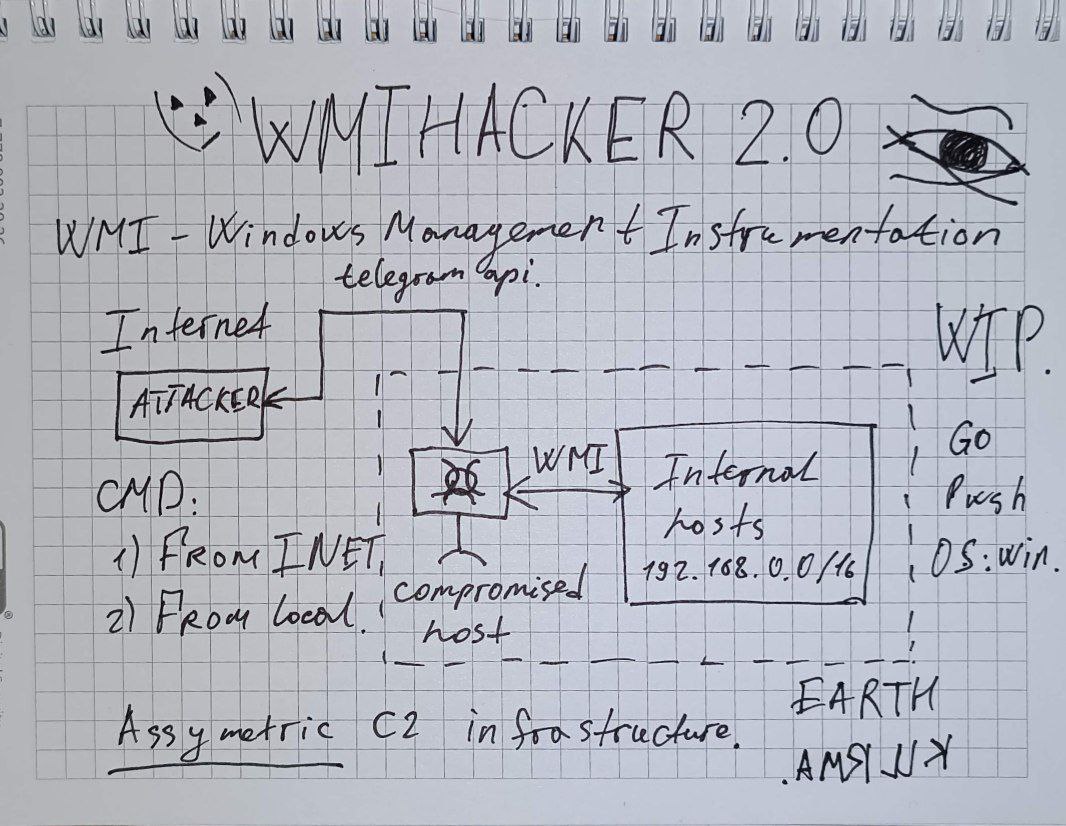 WMIHACKER 2.0
WMI - Windows Management Instrumentation
telegram api.
Internet
ATTACKER
WIP.
CMD:
1) FROM INET
2) FROM local.
WMI
compromised
host
Internal
hosts
192.168.0.0/16
Go
Push
OS: win.
EARTH
Assymetric C2 infrastructure.